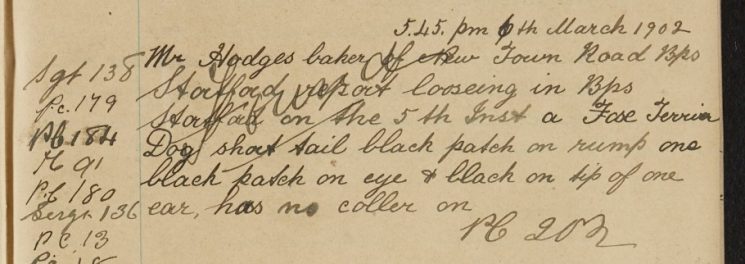 5.45. pm 6th March 1902
Mr Hodges baker of New Town Road Bps
Stortford report looseing in Bps
Stortford on the 5th Inst a Fox Terrier
Dog short tail black patch on rump one
black patch on eye & black on tip of one
ear, has no coller on
PC 202
Sgt 138
P.c. 179
PC 184
91
P.C 180
Sergt 136
P C 13